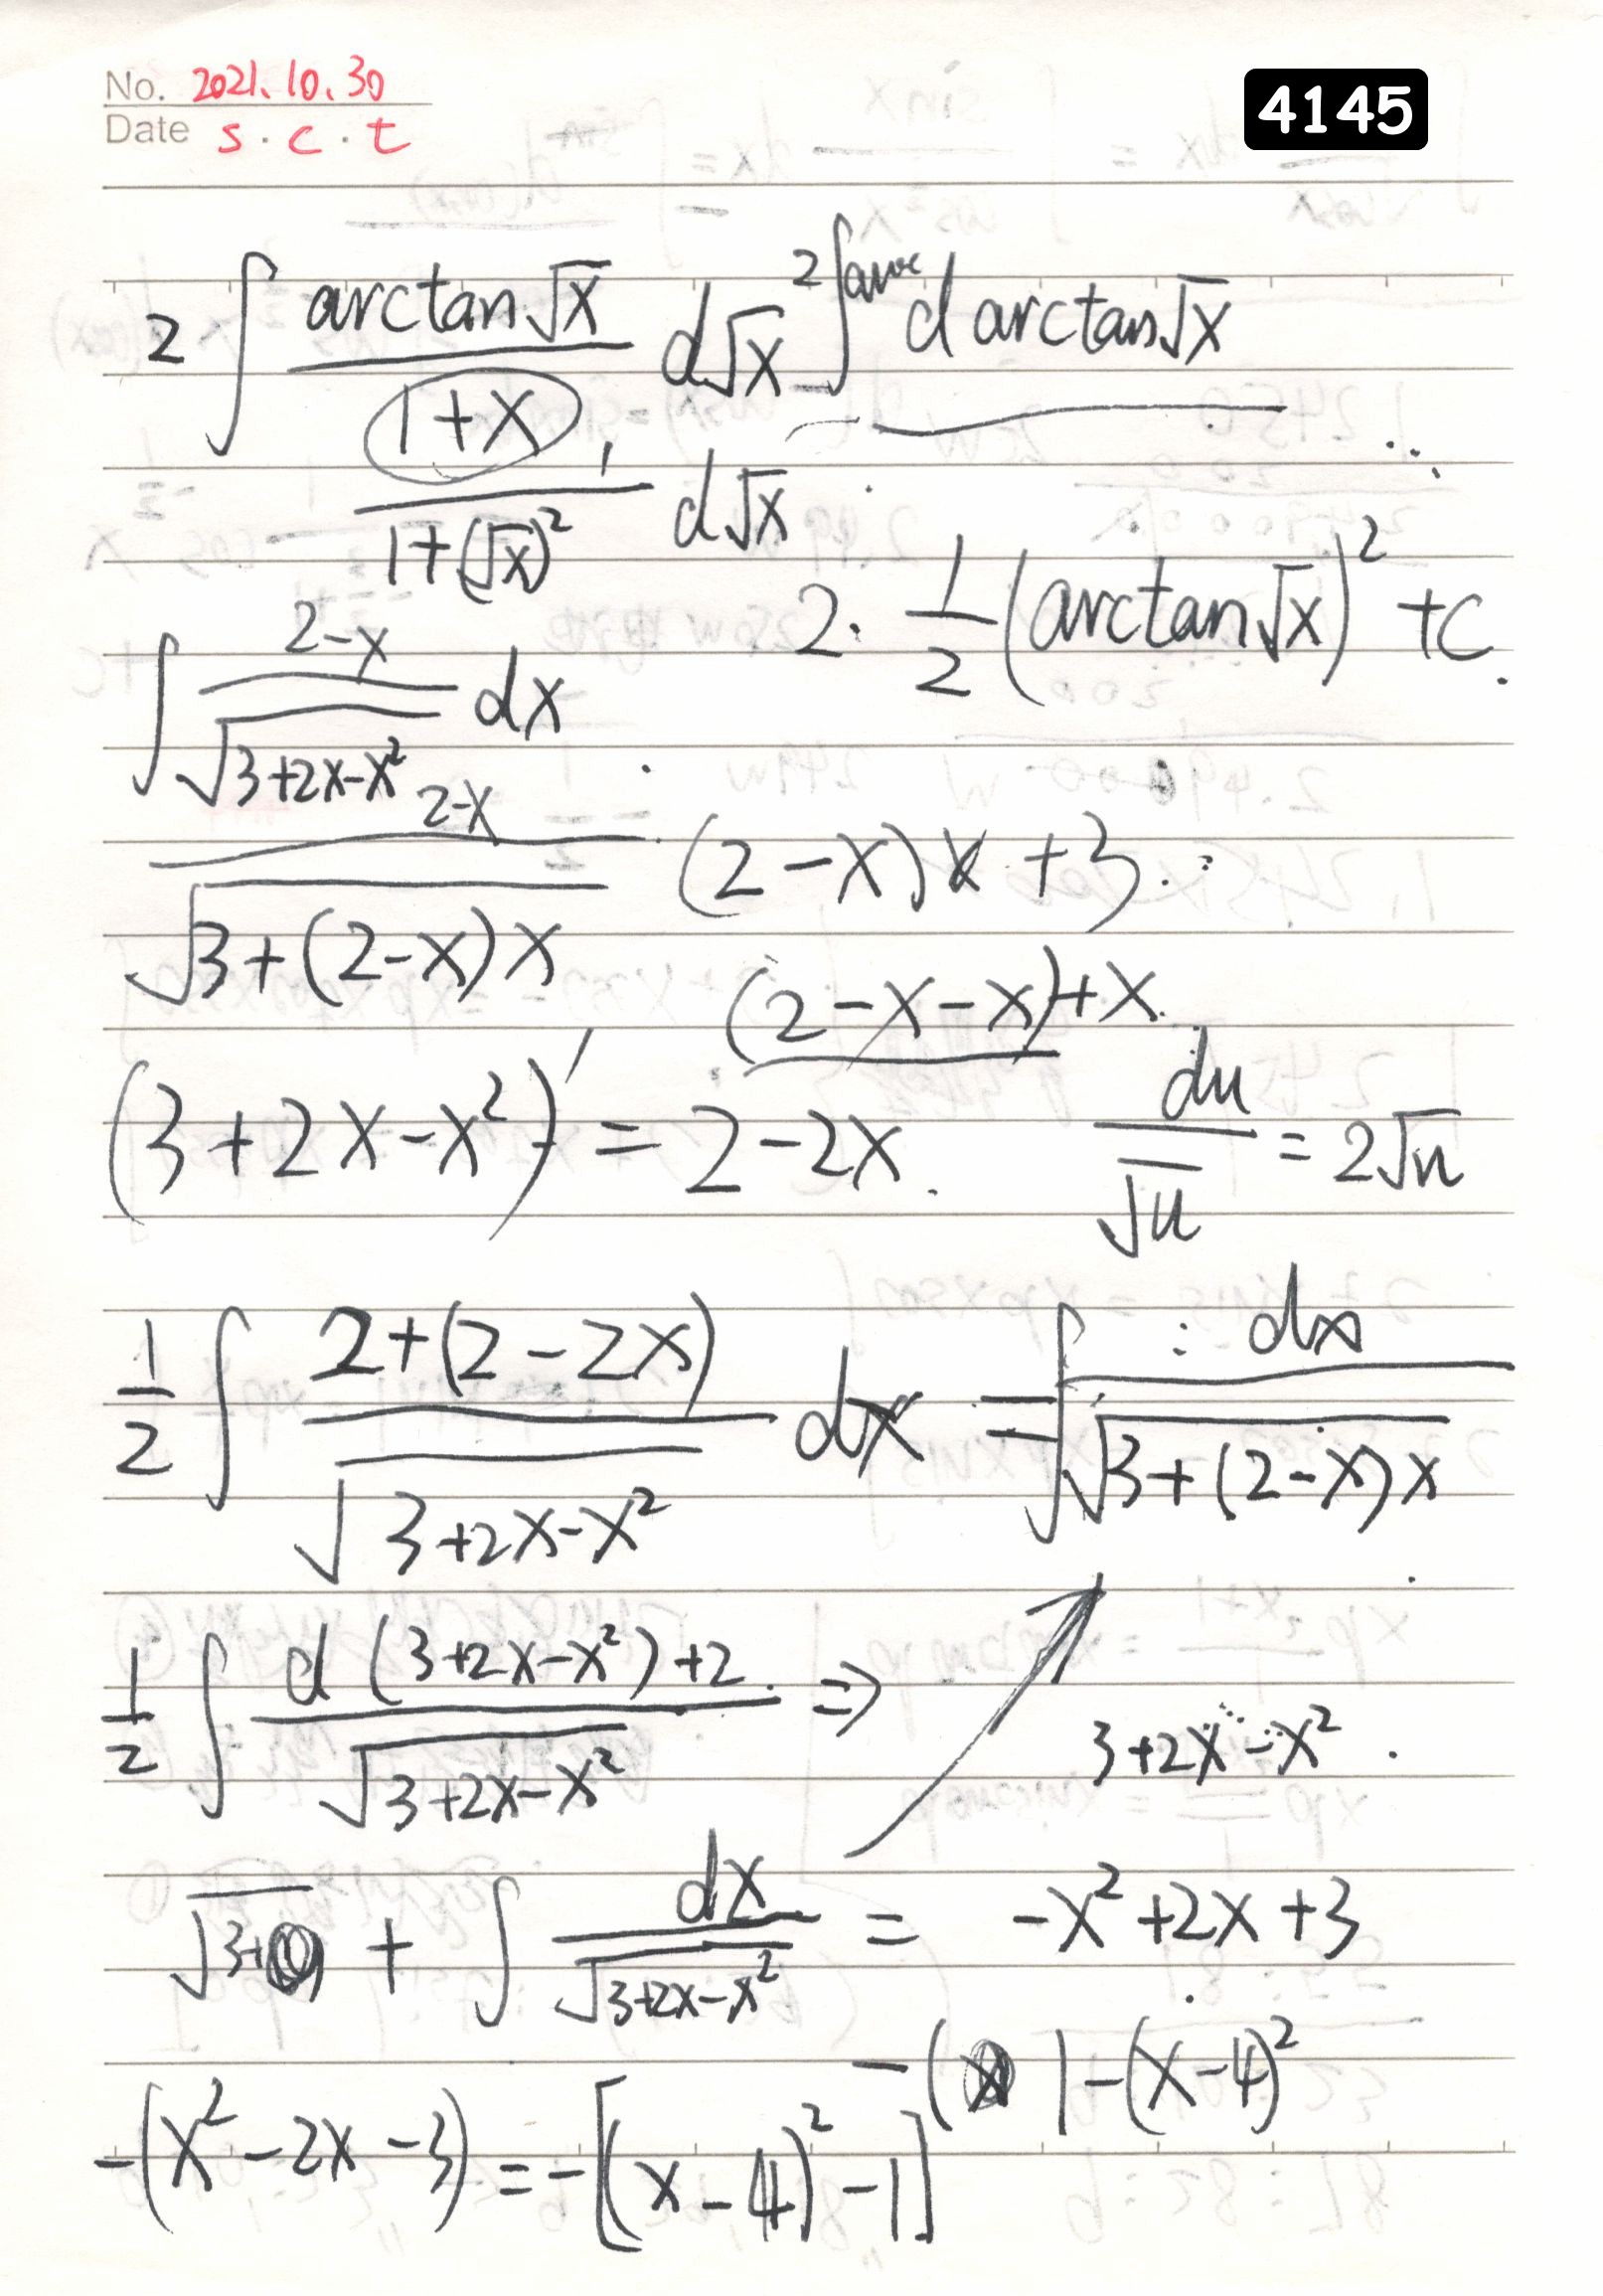 No. 2021.10.30
Date s.c.t
4145
2∫ arctan√x / (1+x) d√x = 2∫ arc d arctan√x
1 / (1+(√x)²) d√x
2· 1/2 (arctan√x)² +C.
∫ (2-x) / √(3+2x-x²) dx
(2-x) / √(3+(2-x)x)
(2-x)x+3
(2-x-x)+x.
(3+2x-x²)' = 2-2x.
du/√u = 2√u
1/2 ∫ (2+(2-2x)) / √(3+2x-x²) dx = ∫ dx / √(3+(2-x)x)
1/2 ∫ (d(3+2x-x²)+2) / √(3+2x-x²) ⇒
3+2x-x².
√3+ + ∫ dx / √(3+2x-x²) = -x²+2x+3
-( 1-(x-4)²
-(x²-2x-3) = -[(x-4)²-1]